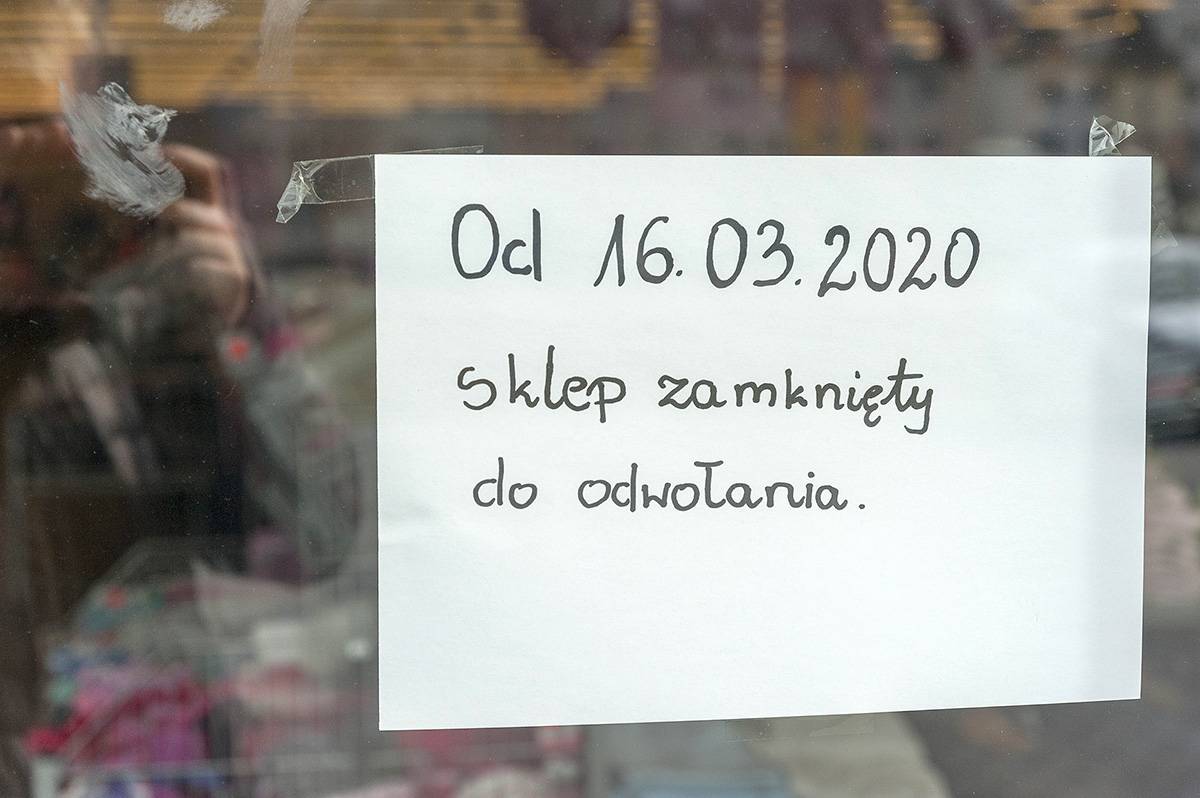 Od 16.03.2020
sklep zamknięty
do odwołania.